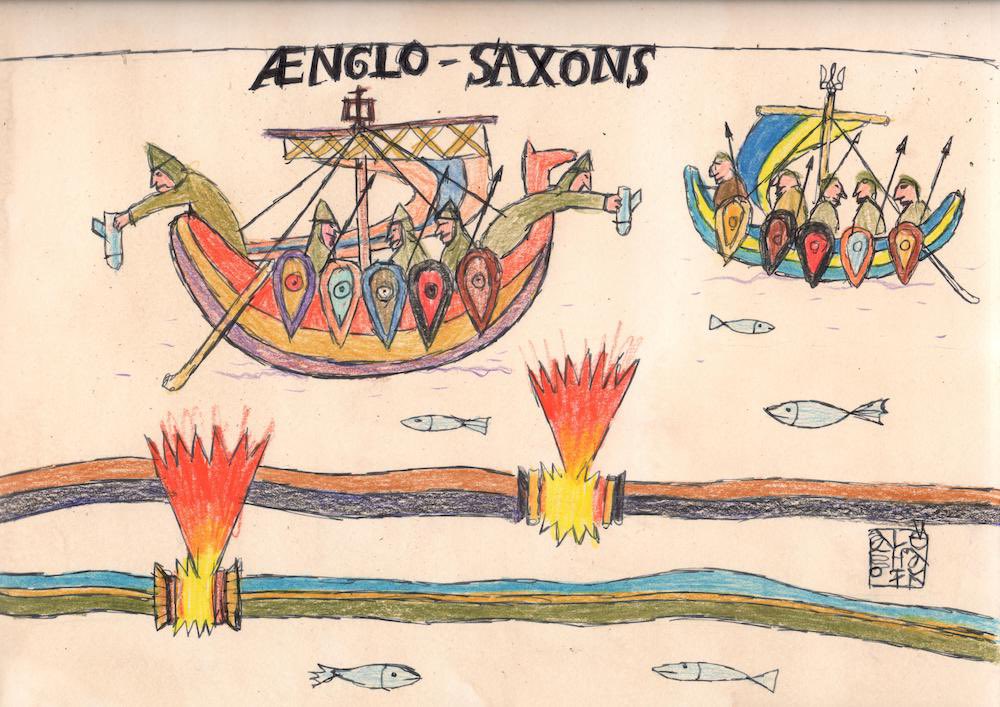 ÆNGLO - SAXONS